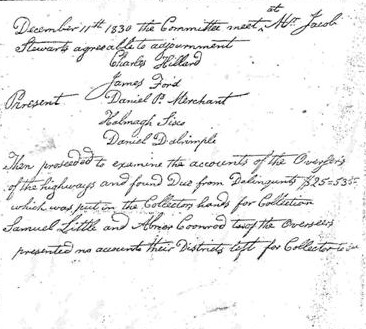 December 11th 1830 the Committee meet at Mr. Jacob
Stewarts agreable to adjournment
Charles Hillard
James Ford
Present Daniel P. Merchant
Halmagh Sisco
Daniel Dalrimple
Then proseded to examine the accounts of the Overseers
of the highways and found Due from Delinqunts $25=53
which was put in the Collectors hands for Collection
Samuel Little and Abner Coonrod two of the Overseers
presented no acounts their Districts left for Collector